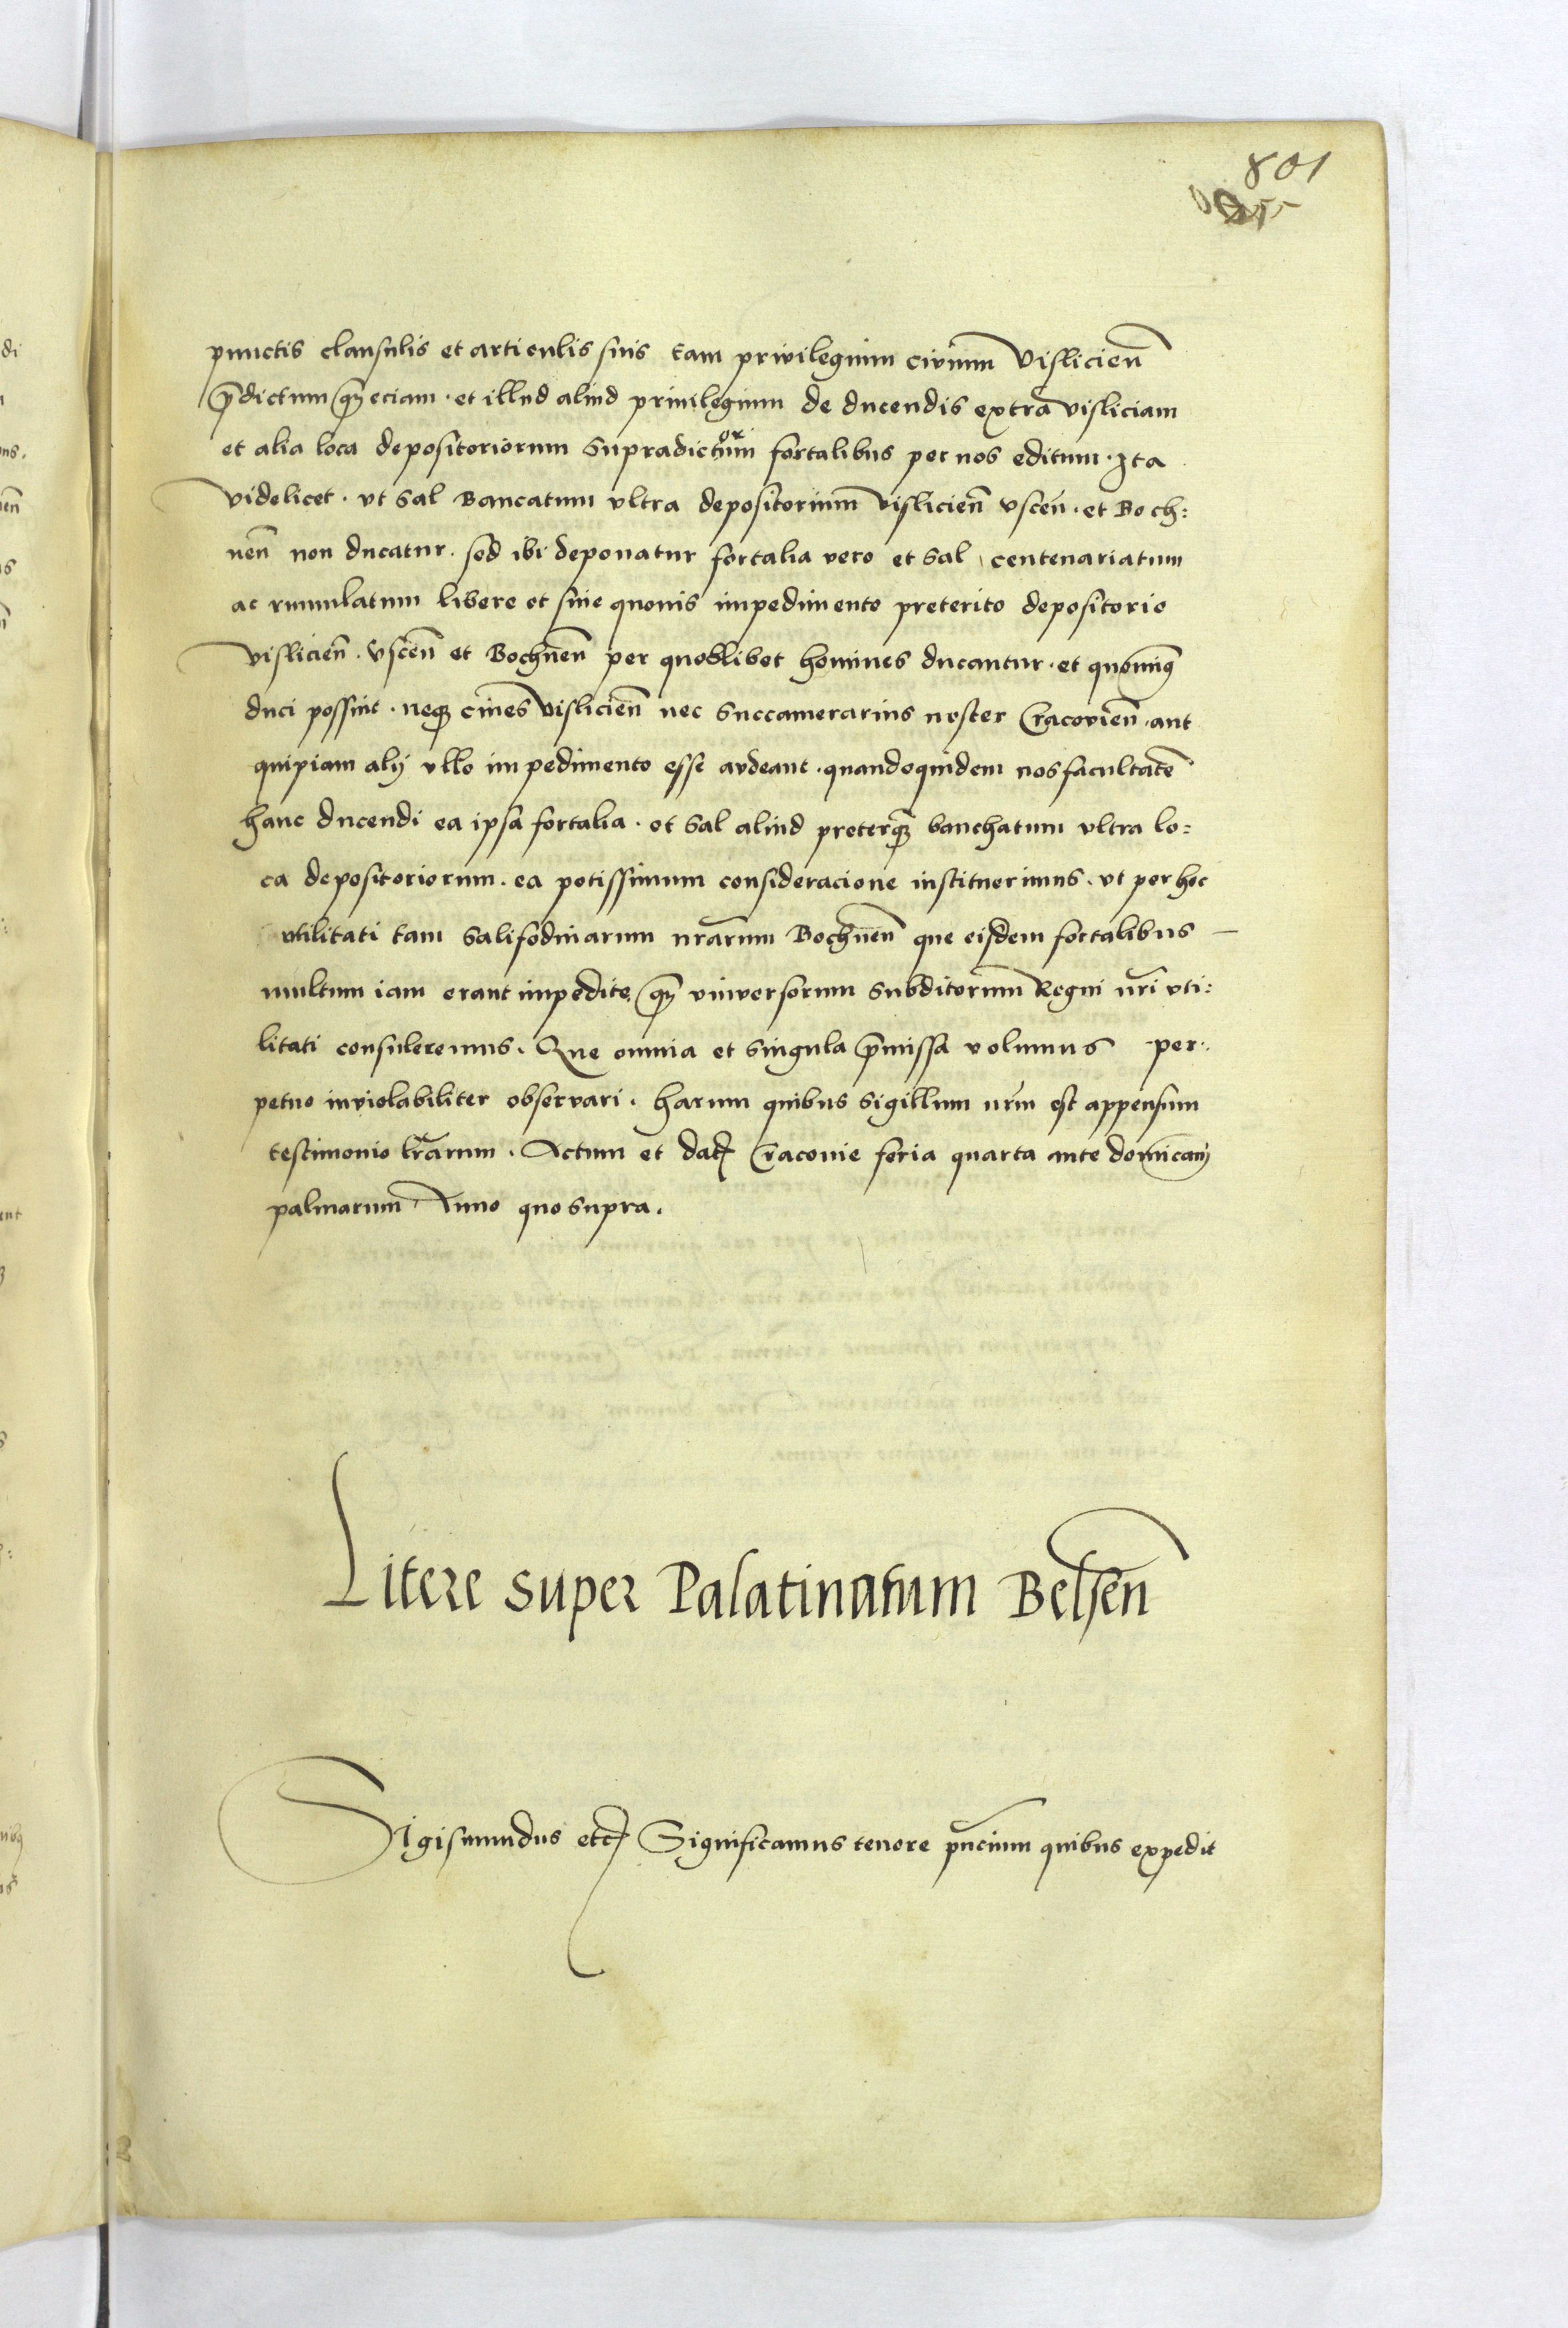 801
punctis clausulis et articulis suis tam privilegium civium Visliciēn
p̄dictum q̄ʒ eciam · et illud aliud privilegium de ducendis extra visliciam
et alia loca depositoriorum supradictorum fortalibus per nos editum · Ita
videlicet · vt sal Bancatum vltra depositorium Visliciēn vscēn · et Boch:
nēn non ducatur . sed ibi deponatur fortalia vero et sal centenariatum
ac rumulatum libere et sine quovis impedimento preterito depositorio
visliciēn . vscēn et Bochnēn per quoslibet homines ducantur · et quomīq
duci possint · neqʒ cives Visliciēn nec succamerarius noster Cracoviēn · aut
quipiam alij vllo impedimento esse audeant · quandoquidem nos facultatē
hanc ducendi ea ipsa fortalia · et sal aliud preterq̄ʒ banchatum vltra lo:
ca depositoriorum . ea potissimum consideracione instituerimus . vt per hoc
vtilitati tam salifodinarum nrārum Bochnēn que eisdem fortalibus
multum iam erant impedite, q̄ʒ vniversorum subditorum Regni nrī vti:
litati consuleremus . Que omnia et singula p̄missa volumus per:
petuo inviolabiliter observari . harum quibus sigillum nrm̄ est appensum
testimonio lr̄arum . Actum et datʒ Cracovie feria quarta ante domīcaʒ
palmarum Anno quo supra .
Litere super Palatinatum Belsēn
Sigismundus etcʒ Significamus tenore pn̄cium quibus expedit